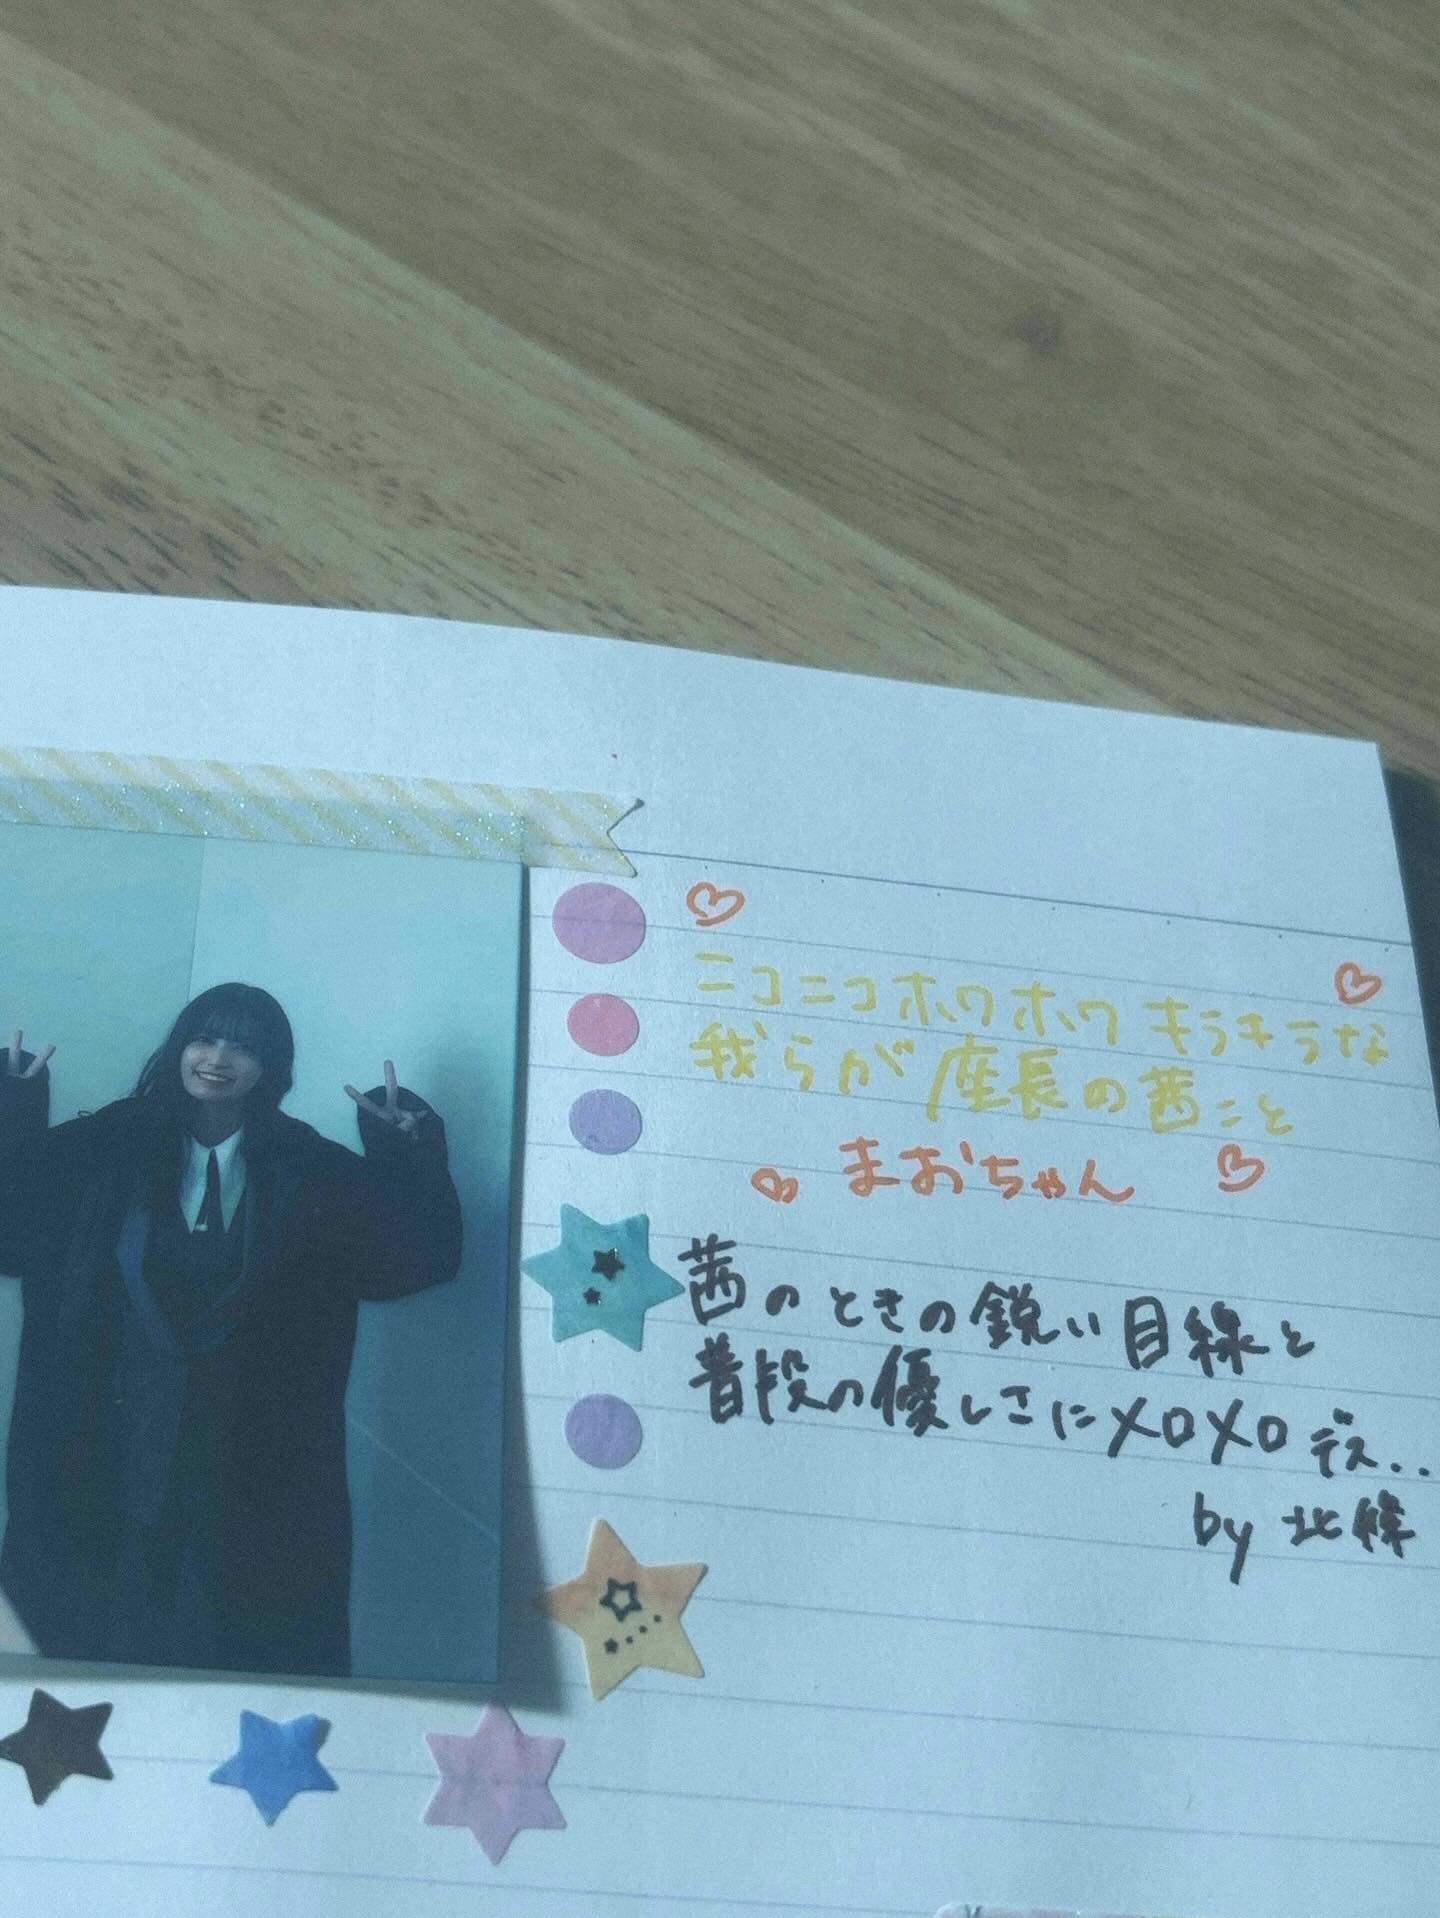 ニコニコホワホワキラキラな
我らが座長の茜こと
まおちゃん
茜のときの鋭い目線と
普段の優しさにメロメロデス..
by 北條